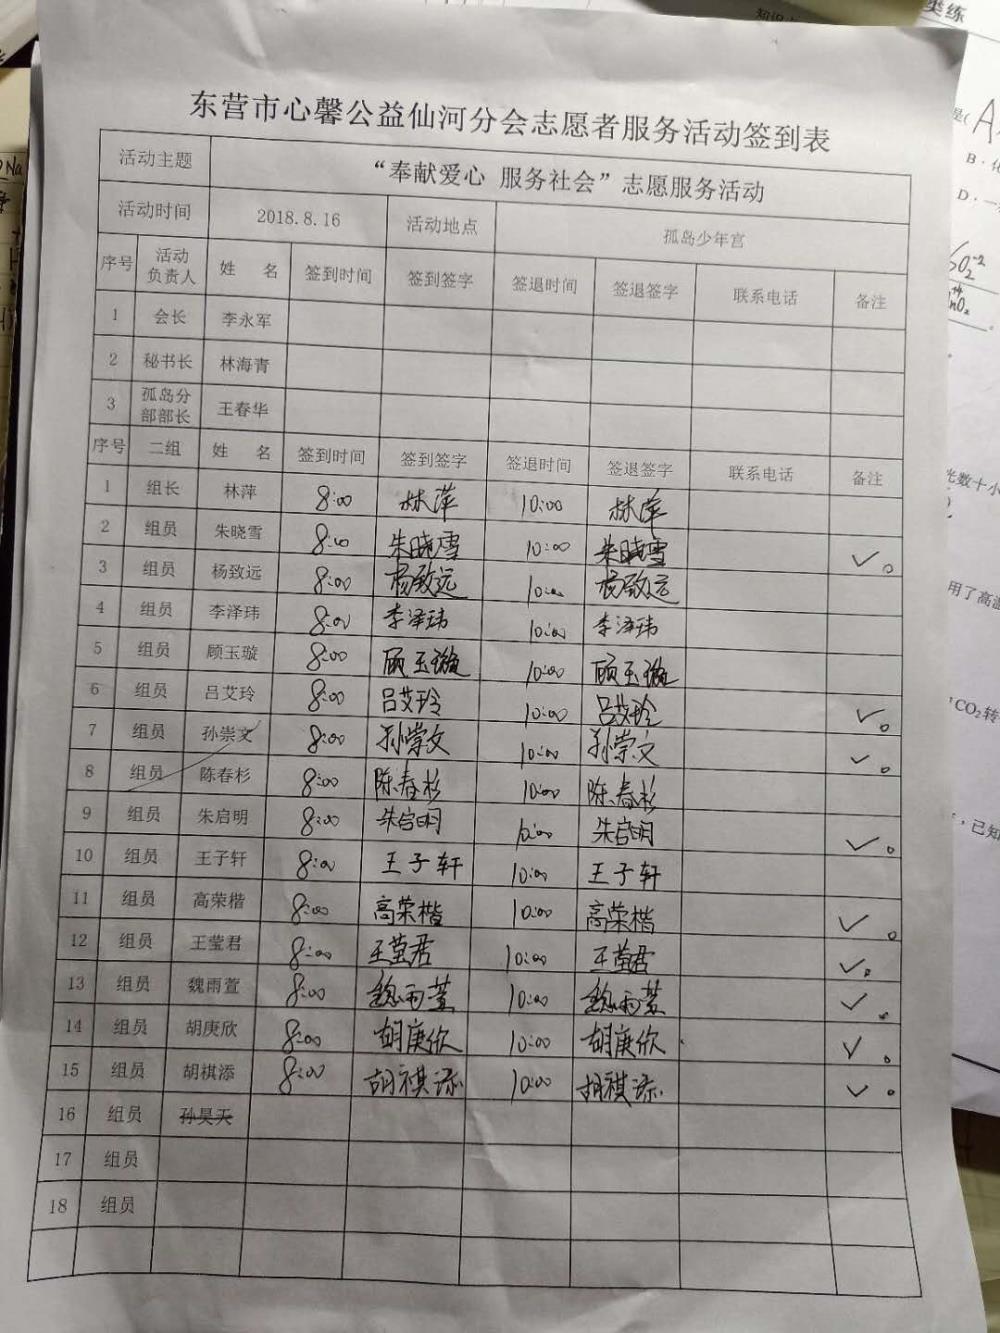 东营市心馨公益仙河分会志愿者服务活动签到表
活动主题 “奉献爱心 服务社会”志愿服务活动
活动时间 2018.8.16 活动地点 孤岛少年宫
序号 活动负责人 姓 名 签到时间 签到签字 签退时间 签退签字 联系电话 备注
1 会长 李永军
2 秘书长 林海青
3 孤岛分部部长 王春华
序号 二组 姓 名 签到时间 签到签字 签退时间 签退签字 联系电话 备注
1 组长 林萍 8:00 林萍 10:00 林萍
2 组员 朱晓雪 8:00 朱晓雪 10:00 朱晓雪 ✓。
3 组员 杨致远 8:00 杨致远 10:00 杨致远
4 组员 李泽玮 8:00 李泽玮 10:00 李泽玮
5 组员 顾玉璇 8:00 顾玉璇 10:00 顾玉璇
6 组员 吕艾玲 8:00 吕艾玲 10:00 吕艾玲 ✓。
7 组员 孙崇文 8:00 孙崇文 10:00 孙崇文 ✓。
8 组员 陈春杉 8:00 陈春杉 10:00 陈春杉
9 组员 朱启明 8:00 朱启明 10:00 朱启明 ✓。
10 组员 王子轩 8:00 王子轩 10:00 王子轩
11 组员 高荣楷 8:00 高荣楷 10:00 高荣楷 ✓。
12 组员 王莹君 8:00 王莹君 10:00 王莹君 ✓。
13 组员 魏雨萱 8:00 魏雨萱 10:00 魏雨萱 ✓。
14 组员 胡庚欣 8:00 胡庚欣 10:00 胡庚欣 ✓。
15 组员 胡祺添 8:00 胡祺添 10:00 胡祺添 ✓。
16 组员 孙昊天
17 组员
18 组员
类练
A
B．化
D．一
光数十小
用了高温
CO₂转
，已知